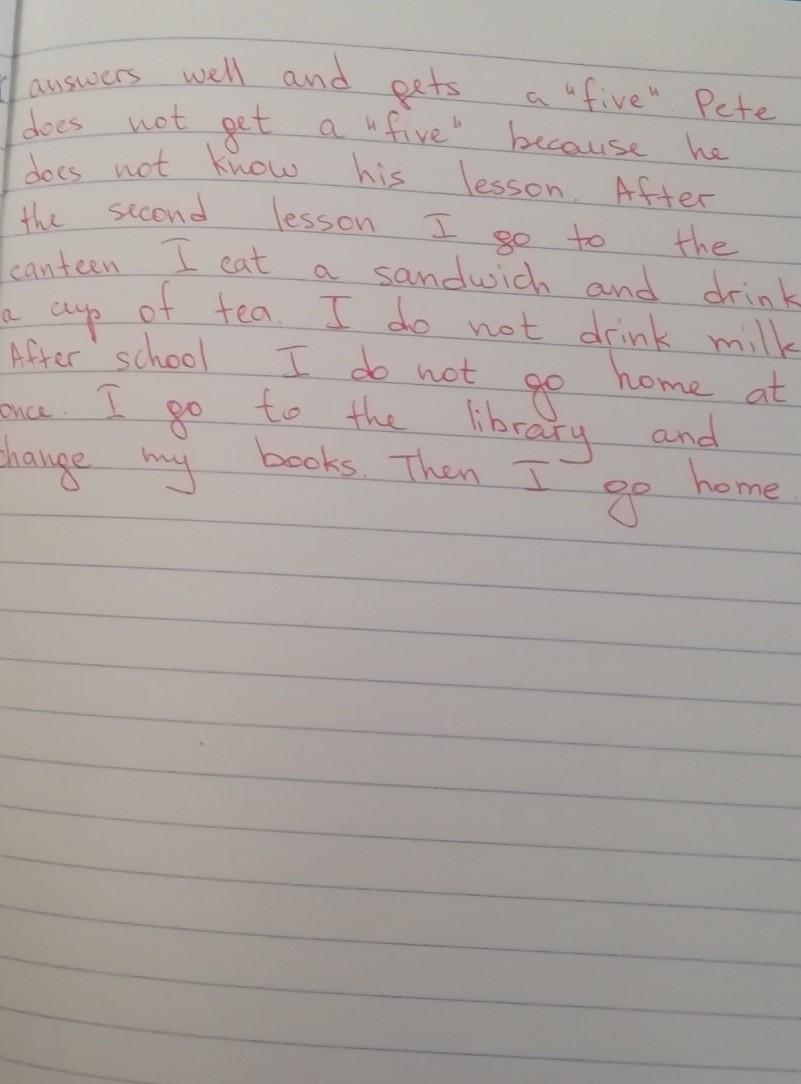 answers well and gets a "five". Pete
does not get a "five" because he
does not know his lesson. After
the second lesson I go to the
canteen I eat a sandwich and drink
a cup of tea. I do not drink milk
After school I do not go home at
once. I go to the library and
change my books. Then I go home.